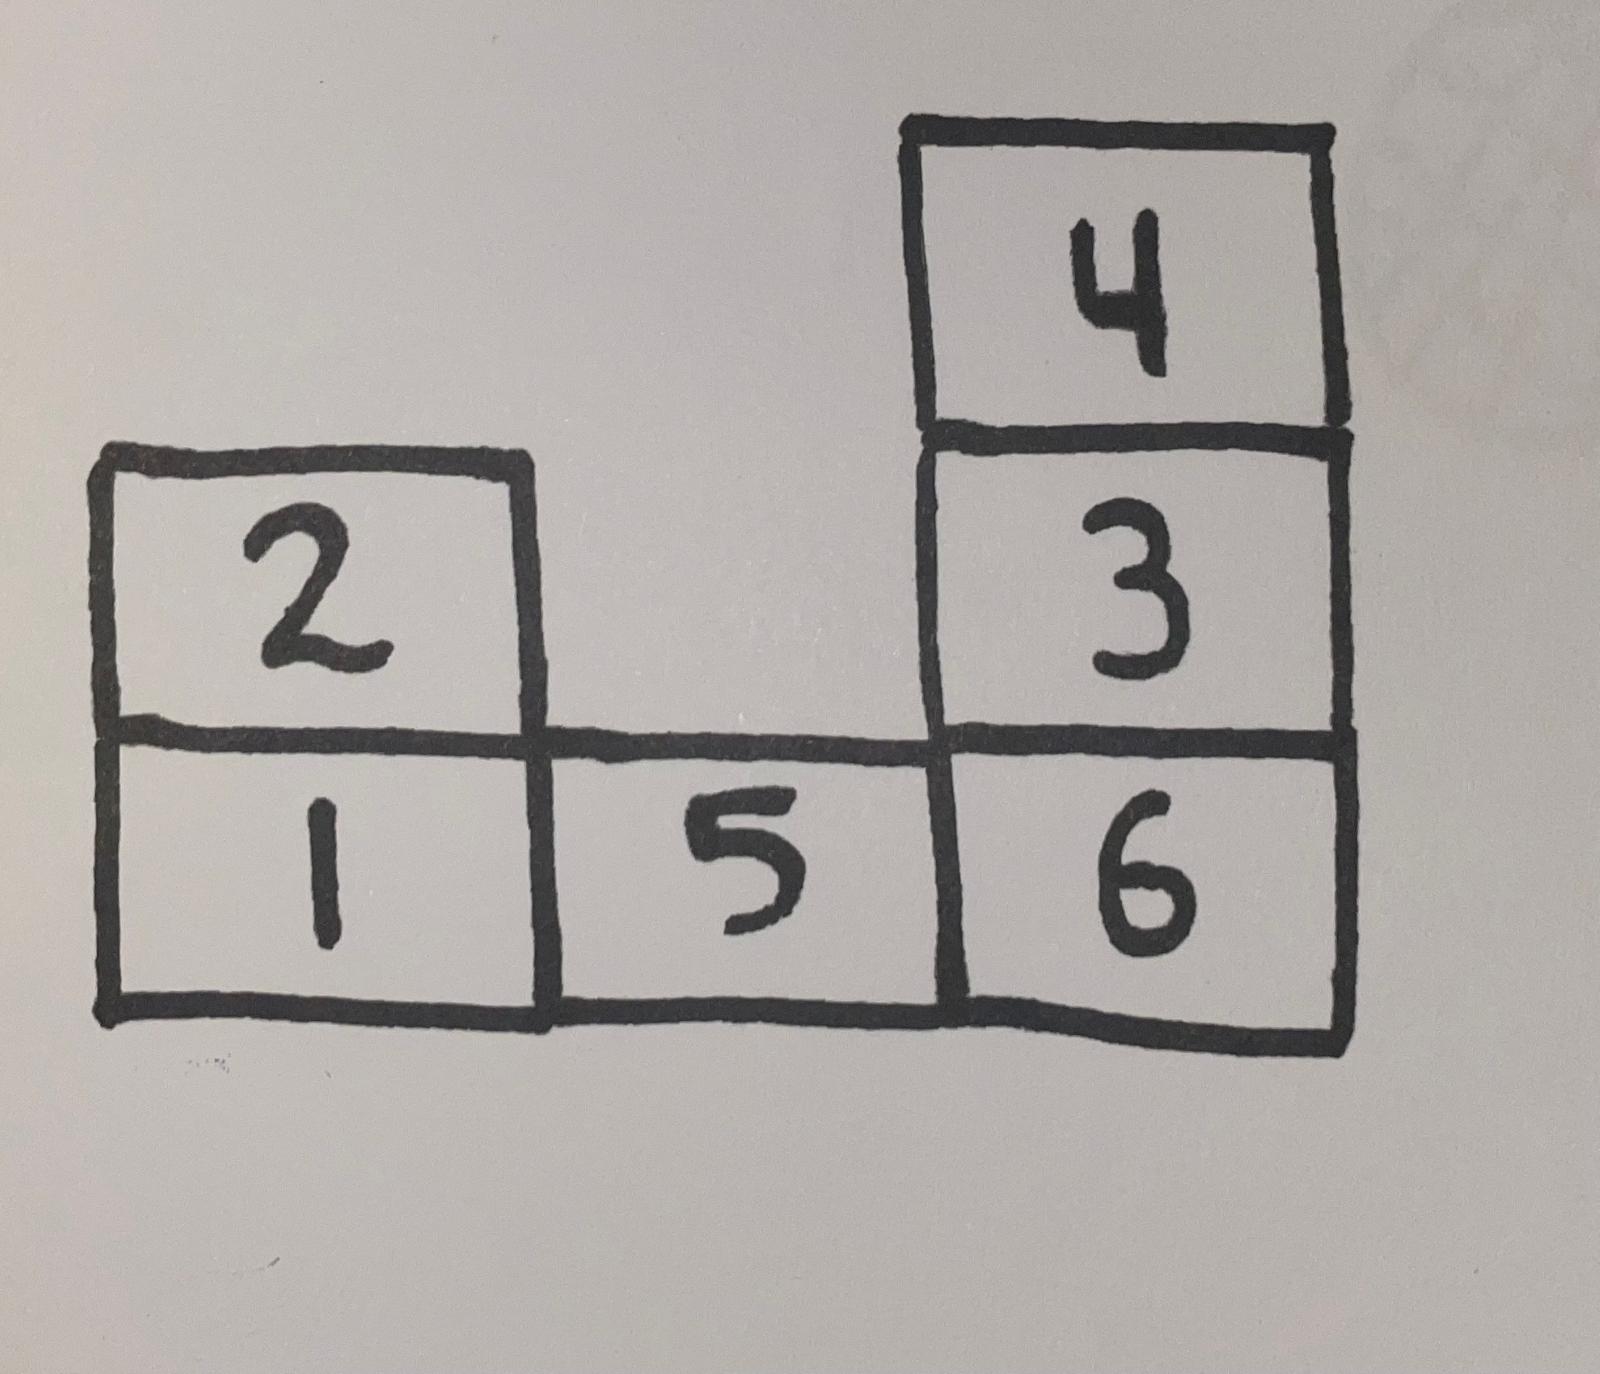 4
2 3
1 5 6